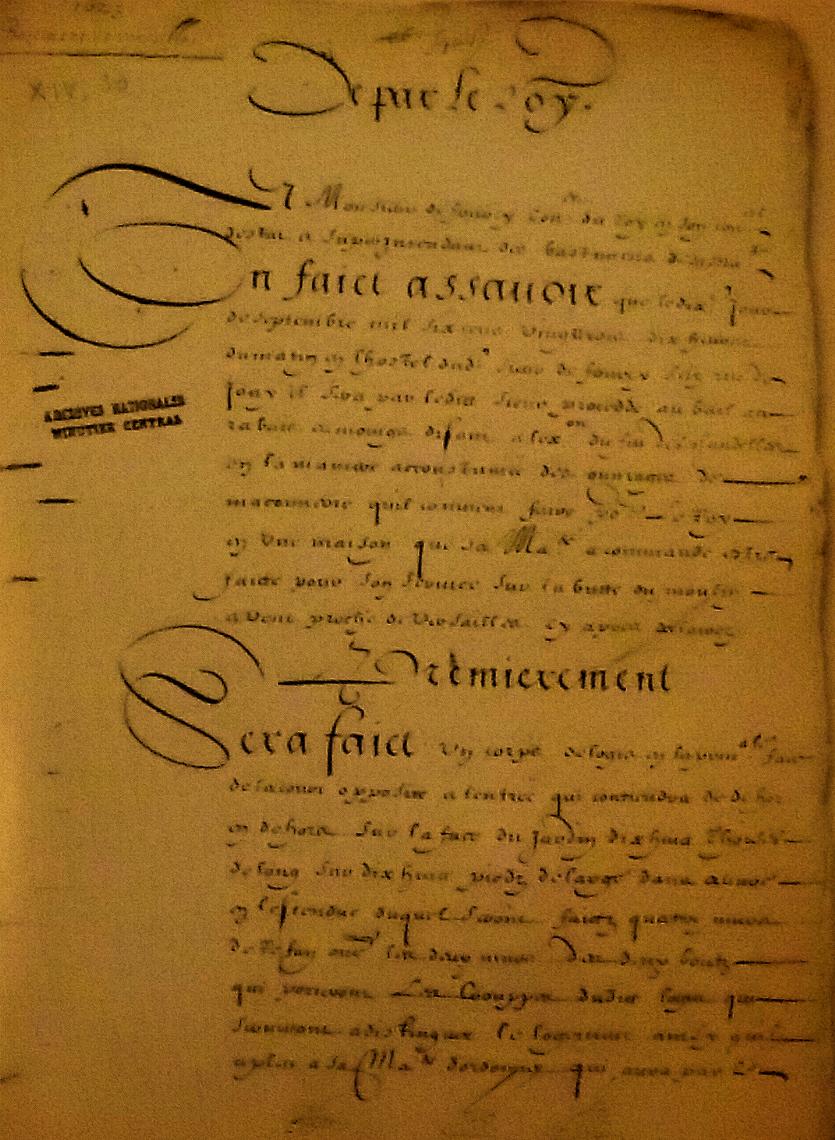 1623
XIV, 30
De par le Roy.
Et Monsieur de fourcy con^er du Roy en son con^el
destat et Superintendant des bastimens de
On faict assavoir que le dix^e Jour
de septembre mil six cens vingt trois dix heures
du matin en lhostel dud^t sieur de fourcy size rue de
Jouy il sera par ledit sieur procedde au bail au
rabais et moings disant a lex^on du feu des chandelles
en la maniere accoustumée des ouvrages de
maconnerie quil convient faire po^r le Roy
en une maison que sa Ma^té a commandé estre
faicte pour son service sur la butte du moulin
a vent proche de Versailles cy apres declairez
Premierement
Sera faict un corps de logis en la prin^alle face
de la cour opposite a lentrée qui contiendra de dehors
en dehors sur la face du Jardin dix huict thoises
de long sur dix huict piedz de large dans œuvre
en lestendue duquel seront faictz quatre murs
de reffan outre les deux murs des deux boutz
qui porteront Les Crouppes dudit logis qui
serviront a distinguer le logement ainsy quil
a pleu a sa Ma^té dordonner qui aura par
ARCHIVES NATIONALES
MINUTIER CENTRAL